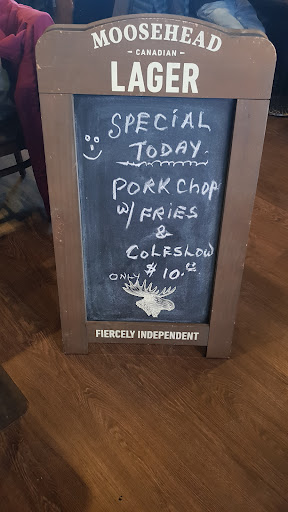 MOOSEHEAD
- CANADIAN -
LAGER
SPECIAL
TODAY
PORK CHOP
W/ FRIES
&
COLESLOW
ONLY $10.00
FIERCELY INDEPENDENT